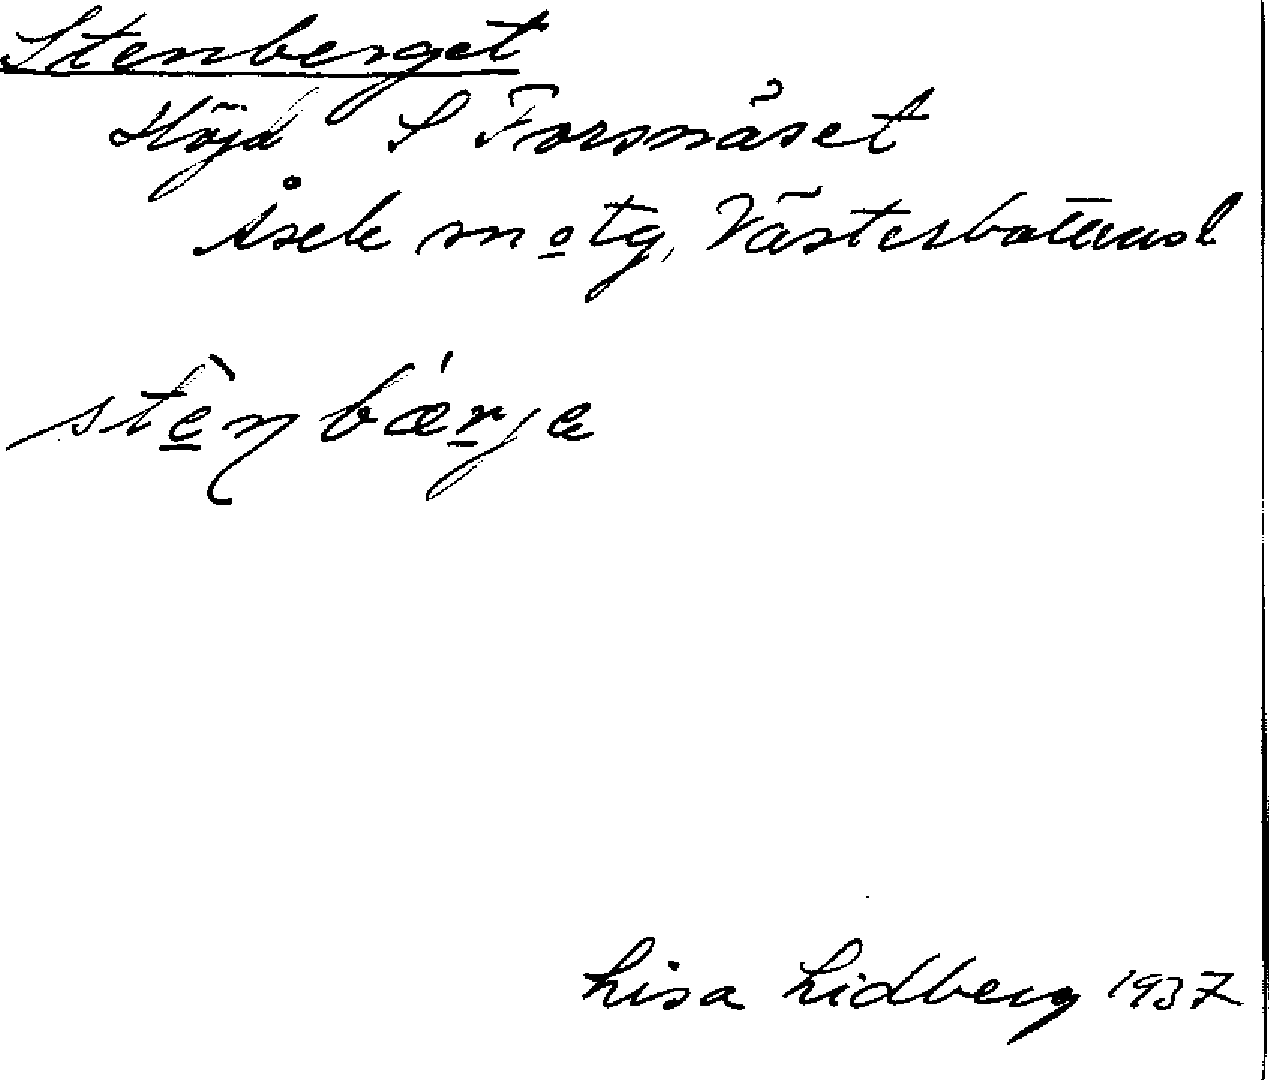 Stenberget
Höjd S Forsnäset
Åsele m o tg, Västerbottens l
ste̱ŋbæṟja
Lisa Lidberg 1937